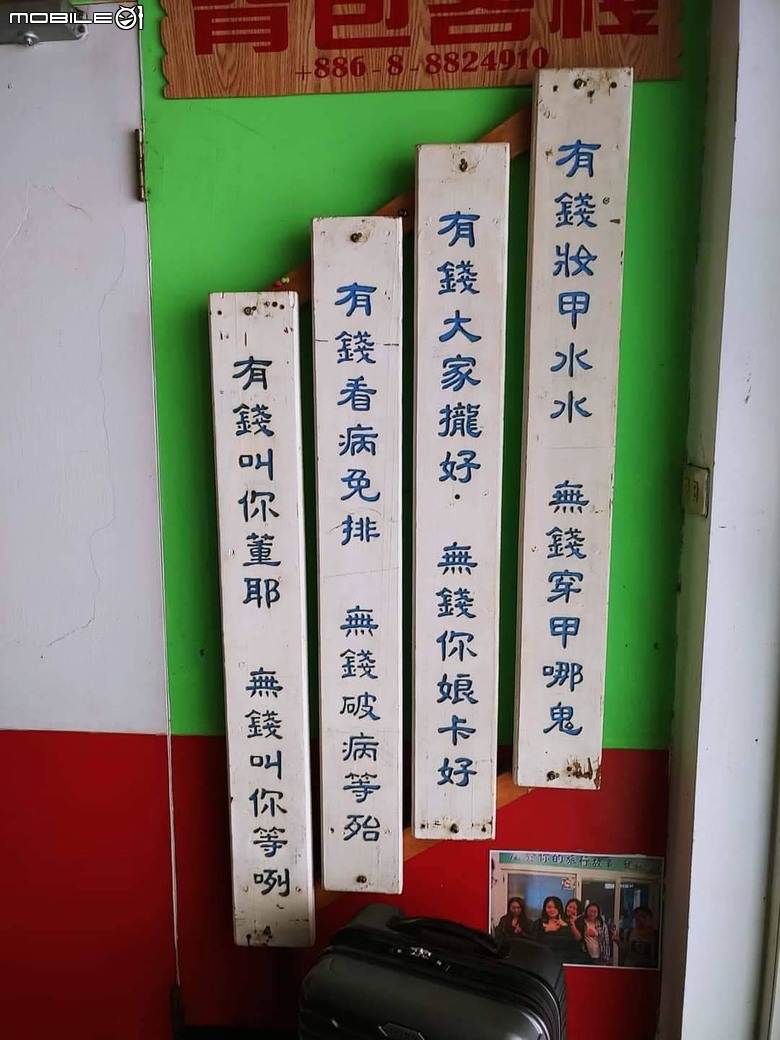 MOBILE01
背包客棧
+886-8-8824910
有錢妝甲水水 無錢穿甲哪鬼
有錢大家攏好.無錢你娘卡好
有錢看病免排 無錢破病等殆
有錢叫你董耶 無錢叫你等咧